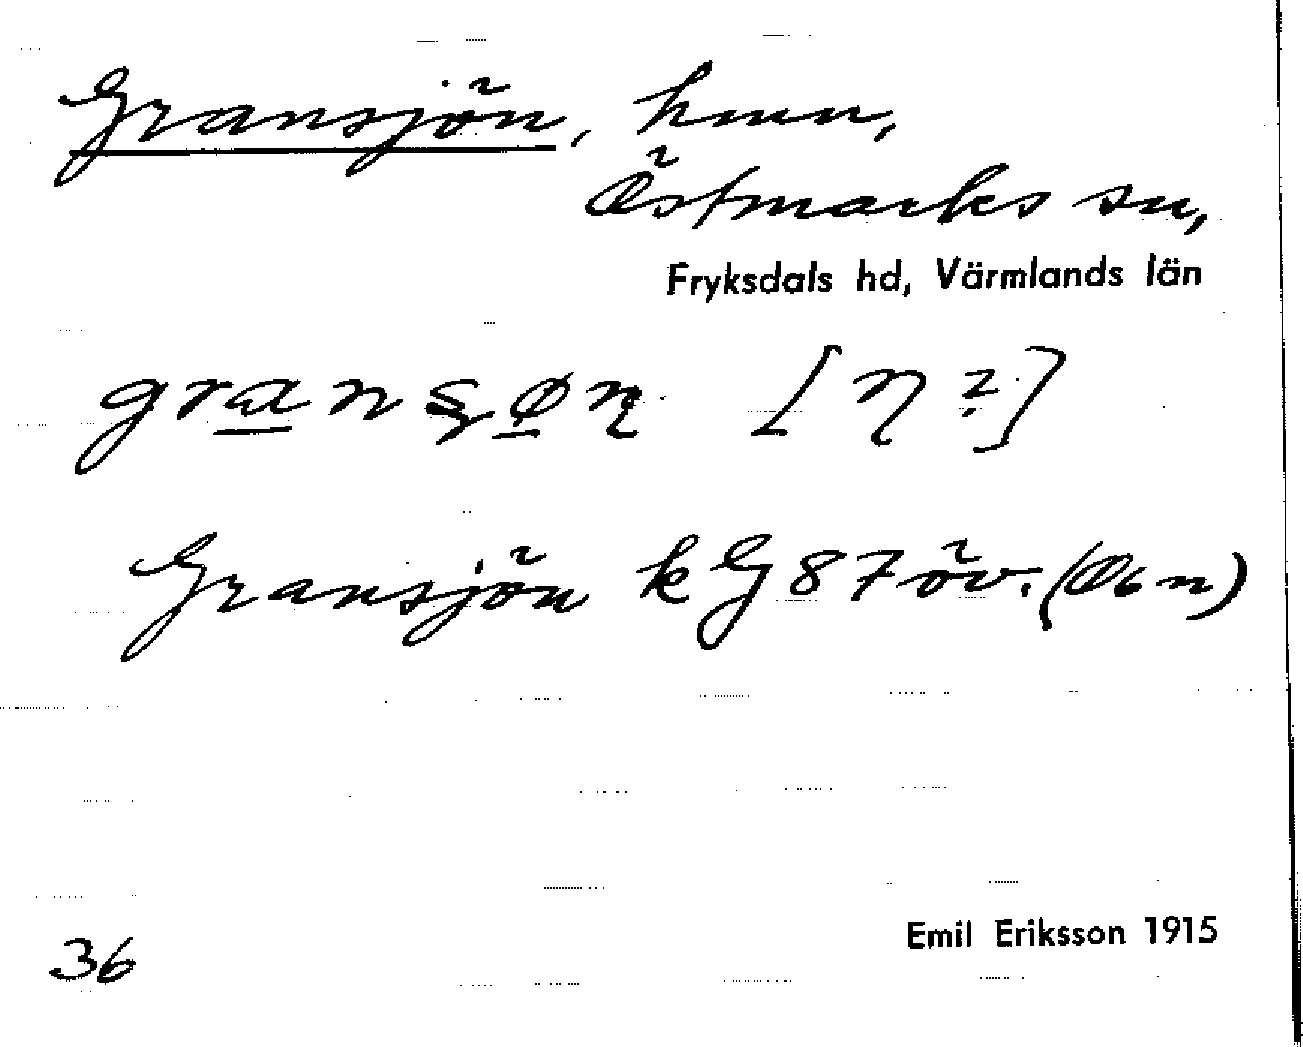 Gransjön, hmn,
Östmarks sn,
Fryksdals hd, Värmlands län
Gransjön k G 87 öv.
36
Emil Eriksson 1915